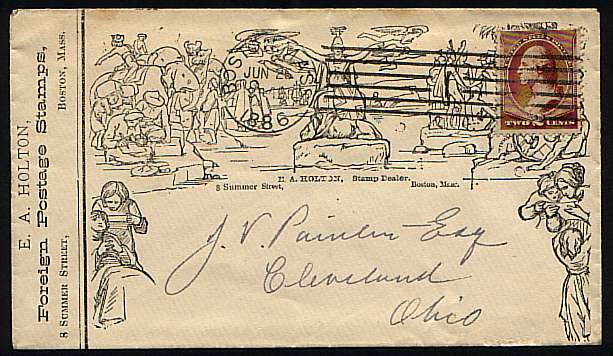 E. A. HOLTON,
Foreign Postage Stamps,
8 SUMMER STREET, BOSTON, MASS.
BOSTON
JUN 2
1886
TWO CENTS
E. A. HOLTON, Stamp Dealer.
8 Summer Street, Boston, Mass.
J. V. Painter Esq
Cleveland
Ohio